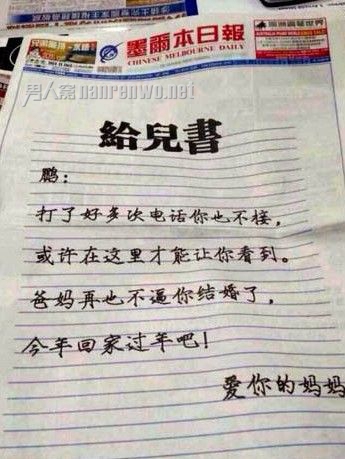 墨爾本日報
CHINESE MELBOURNE DAILY
男人窝nanrenwo.net
給兒書
鹏：
打了好多次电话你也不接，
或许在这里才能让你看到。
爸妈再也不逼你结婚了，
今年回家过年吧！
爱你的妈妈